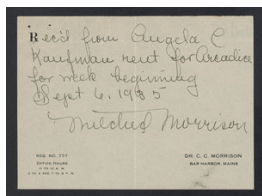 Rec'd from Angela C
Kaufman rent for Arcadia
for week beginning
Sept 6, 1935
Mildred Morrison
OFFICE HOURS
DR. C. C. MORRISON
BAR HARBOR, MAINE